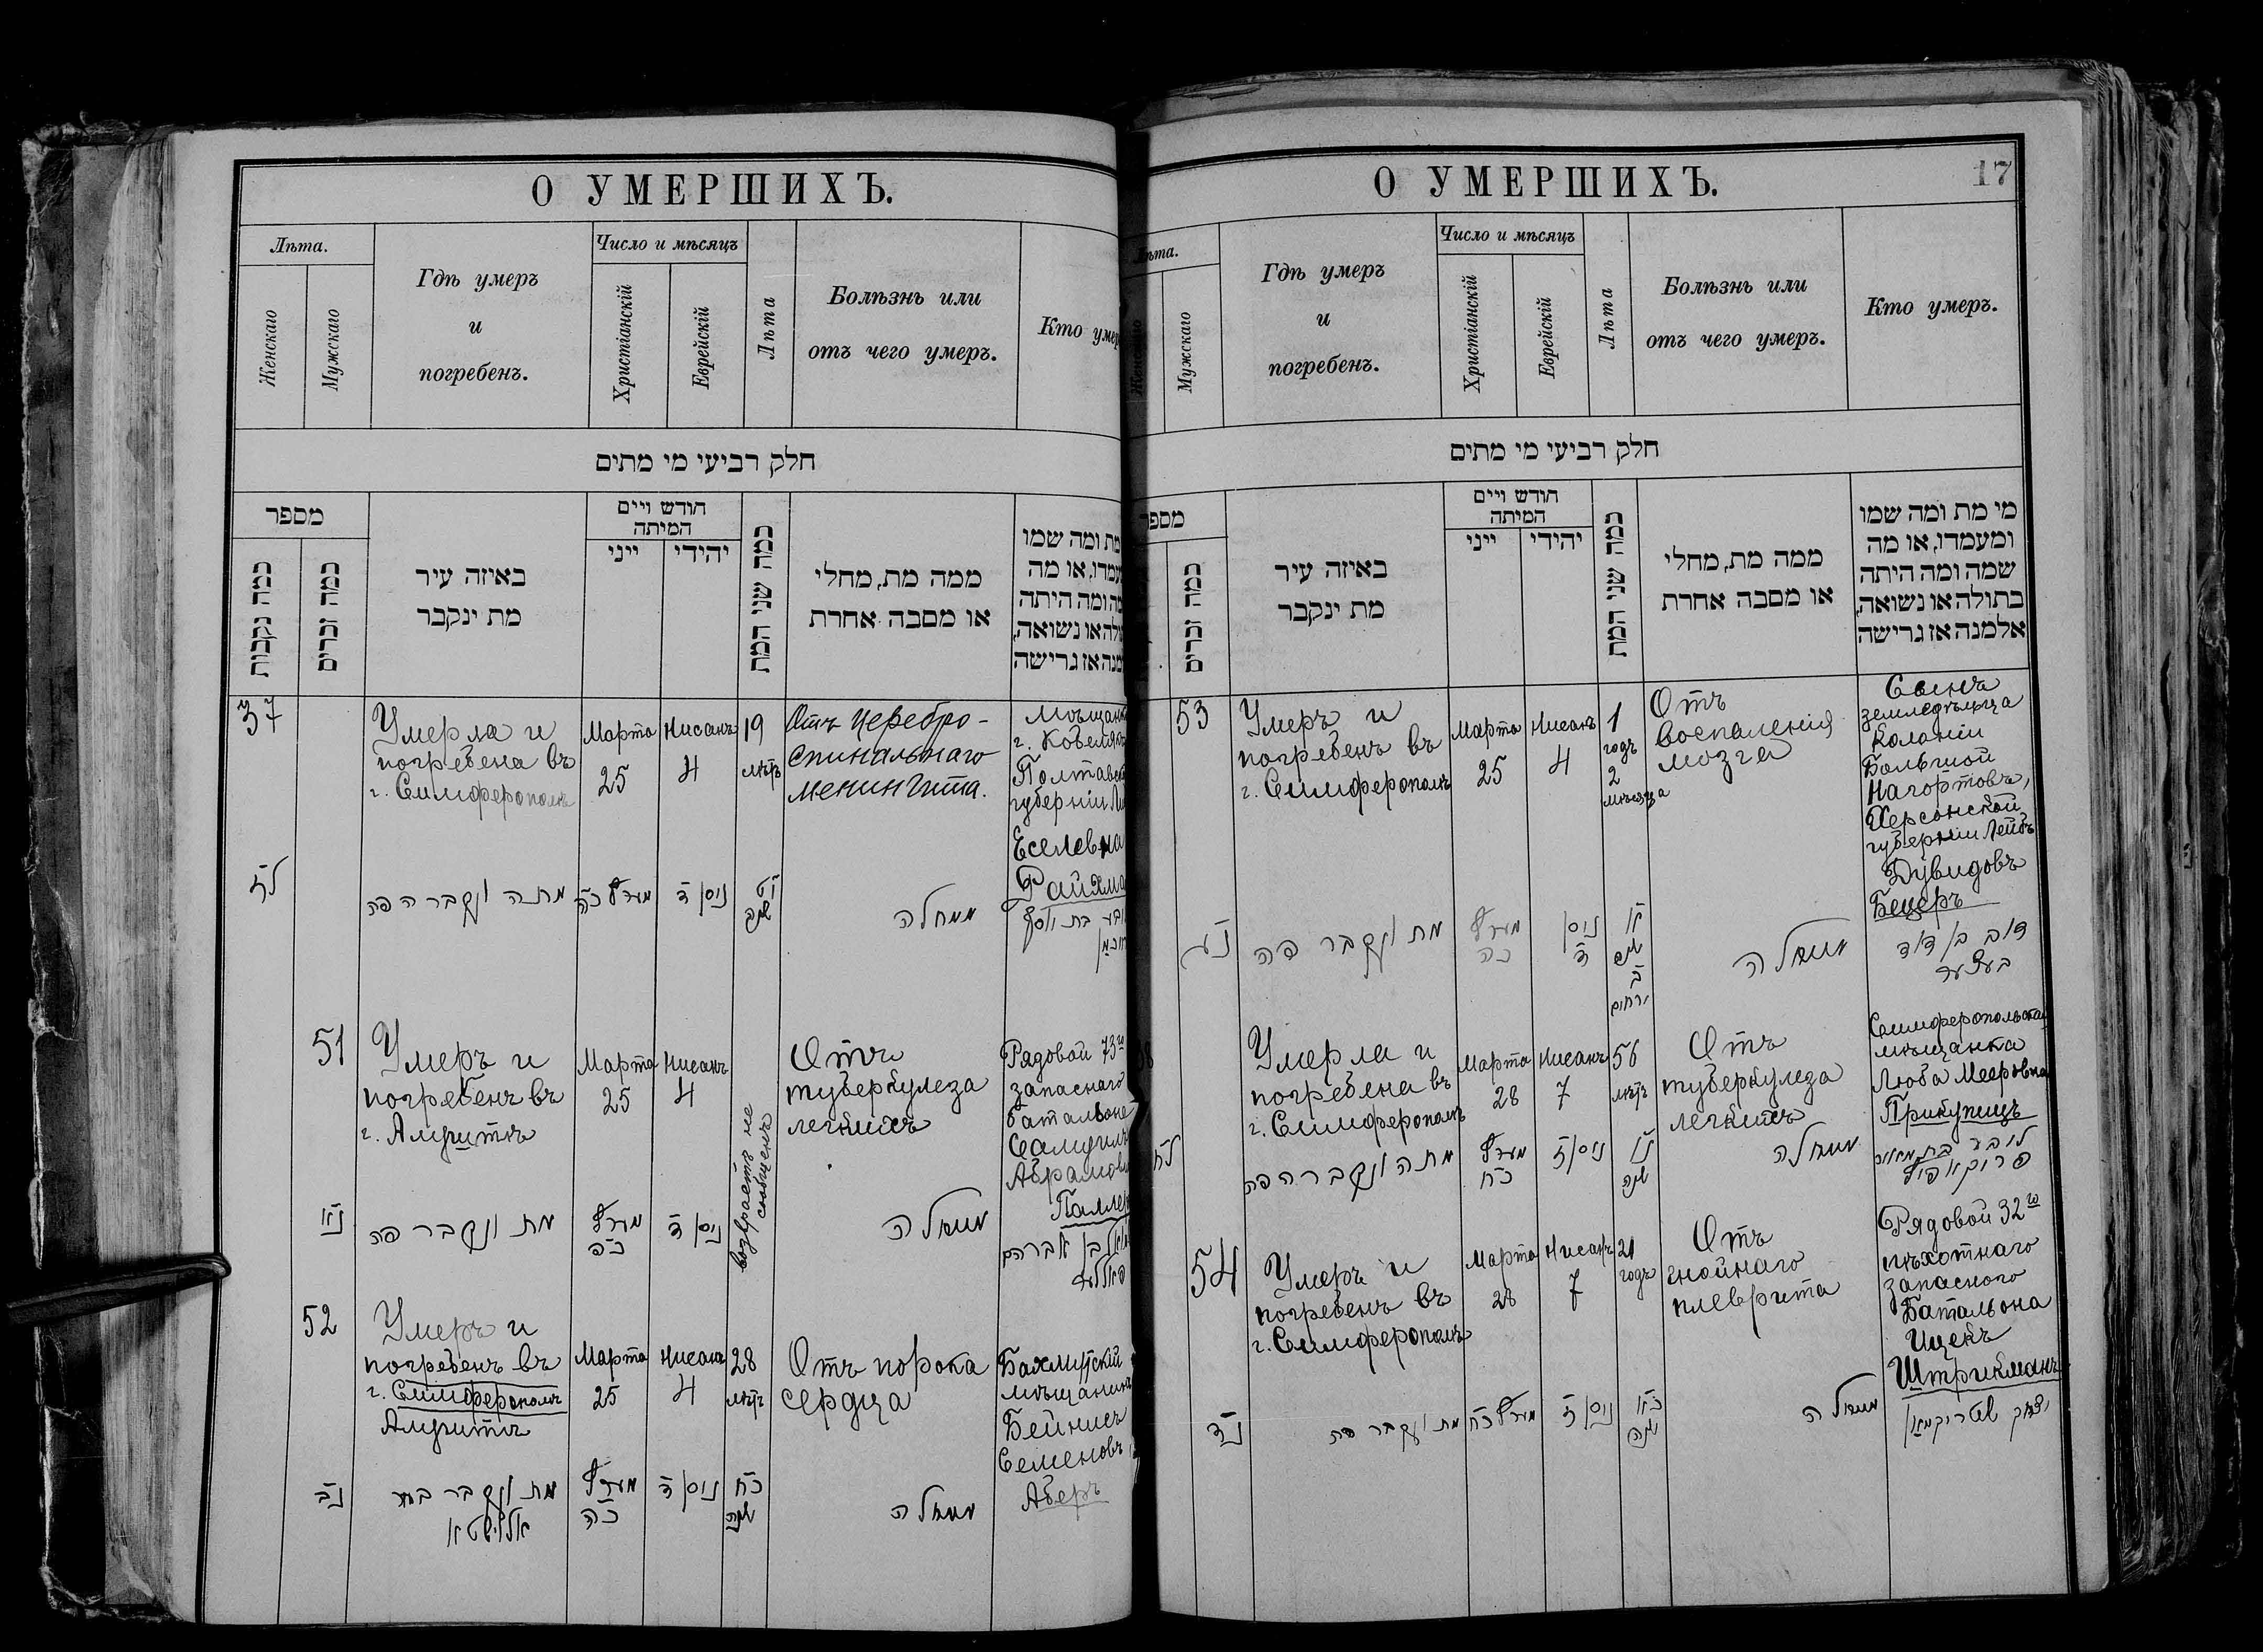 О УМЕРШИХЪ.
Лѣта.
Женскаго
Мужскаго
Гдѣ умеръ
и
погребенъ.
Число и мѣсяцъ
Христіанскій
Еврейскій
Лѣта
Болѣзнь или
отъ чего умеръ.
Кто умер
חלק רביעי מי מתים
מספר
כמה נקבות
כמה זכרים
באיזה עיר
מת ינקבר
חודש ויים
המיתה
ייני
יהודי
כמה שני המת
ממה מת, מחלי
או מסבה אחרת
מת ומה שמו
עמדו, או מה
מה ומה היתה
ולה או נשואה,
מנה אז גרישה
37
Умерла и
погребена въ
г. Симферополѣ
Марта
25
Нисанъ
4
19
лѣтъ
Отъ церебро-
спинальнаго
менингита.
Мѣщанк
г. Кобеляк
Полтавск
губерніи
Еселевна
Райхма
לז
מתה ונקברה פה
מערץ כה
ניסן ד
יט
שנה
ממחלה
בת יוסף
51
Умеръ и
погребенъ въ
г. Алуштѣ
Марта
25
Нисанъ
4
возрастъ не
сообщенъ
Отъ
туберкулеза
легкихъ
Рядовой 73го
запаснаго
баталіона
Самуилъ
Абрамов
Паллер
נא
מת ונקבר פה
מערץ
כה
ניסן ד
ממחלה
בן אברהם
52
Умеръ и
погребенъ въ
г. Симферополѣ
Алуштѣ
Марта
25
Нисана
4
28
лѣтъ
Отъ порока
сердца
Бахмутскій
мѣщанинъ
Бейнисъ
Семеновъ
Аберъ
נב
מת ונקבר בעיר
מערץ
כה
ניסן ד
כח
שנה
ממחלה
О УМЕРШИХЪ.
17
ѣта.
Женскаго
Мужскаго
Гдѣ умеръ
и
погребенъ.
Число и мѣсяцъ
Христіанскій
Еврейскій
Лѣта
Болѣзнь или
отъ чего умеръ.
Кто умеръ.
חלק רביעי מי מתים
מספ
כמה זכרים
באיזה עיר
מת ינקבר
חודש ויים
המיתה
ייני
יהודי
כמה שני המת
ממה מת, מחלי
או מסבה אחרת
מי מת ומה שמו
ומעמדו, או מה
שמה ומה היתה
בתולה או נשואה,
אלמנה אז גרישה
53
Умеръ и
погребенъ въ
г. Симферополѣ
Марта
25
Нисанъ
4
1
годъ
2
мѣсяца
Отъ
воспаленія
мозга
Сынъ
земледѣльца
колоніи
Большой
Нагортовъ,
Херсонской
губерніи Лейбъ
Дувидовъ
Бецеръ
נג
מת ונקבר פה
מערץ
כה
ניסן
ד
א
שנה
ב
ירחים
ממחלה
בן דוד
בעצער
Умерла и
погребена въ
г. Симферополѣ
Марта
28
Нисанъ
7
56
лѣтъ
Отъ
туберкулеза
легкихъ
Симферопольская
мѣщанка
Люба Мееровна
Прикупецъ
לח
מתה ונקברה פה
מערץ
כח
ניסן ז
נו
שנה
ממחלה
ליבע בת מאיר
פריקופיץ
54
Умеръ и
погребенъ въ
г. Симферополѣ
Марта
28
Нисанъ
7
21
годъ
Отъ
гнойнаго
плеврита
Рядовой 32го
пѣхотнаго
запасного
Батальона
Ицекъ
Штрикманъ
נד
מת ונקבר פה
מערץ כח
ניסן ז
כא
שנה
ממחלה
יצחק שטריקמאן